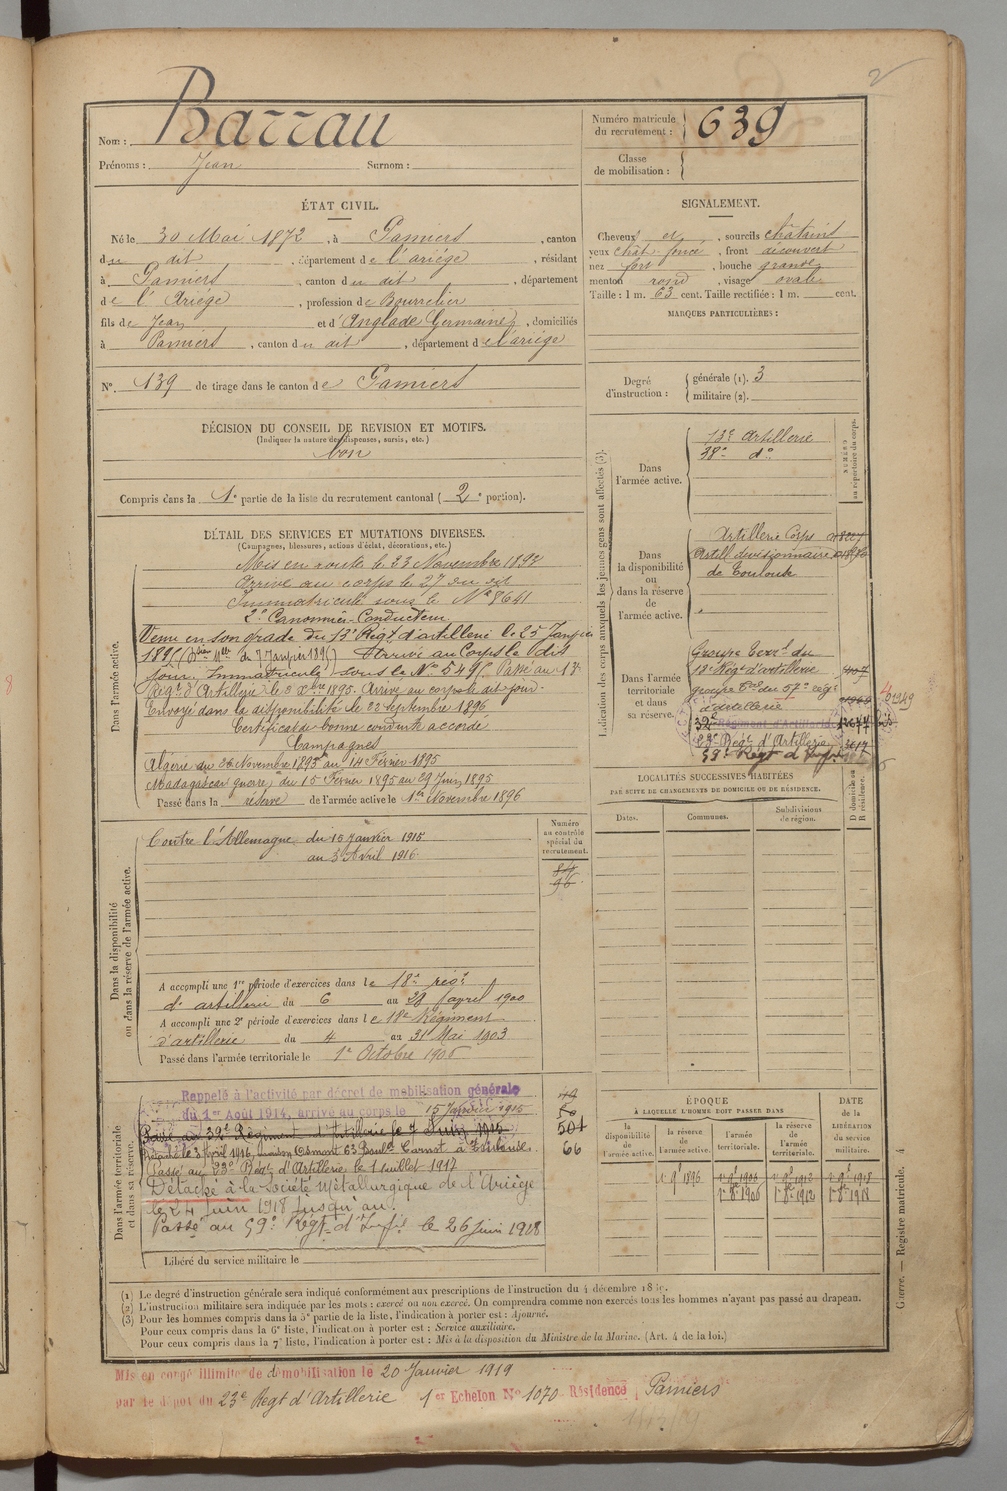 2
Nom : Barrau
Prénoms : Jean Surnom :
Numéro matricule du recrutement : 639
Classe de mobilisation :
ÉTAT CIVIL.
Né le 30 Mai 1872, à Pamiers, canton
du dit, département de l'ariège, résidant
à Pamiers, canton du dit, département
de l'Ariège, profession de Bourrelier
fils de Jean et d'Anglade Germaine, domiciliés
à Pamiers, canton du dit, département de l'ariège
N°. 139 de tirage dans le canton de Pamiers
SIGNALEMENT.
Cheveux et, sourcils châtains
yeux chât. foncé, front découvert
nez fort, bouche grande
menton rond, visage ovale
Taille : 1 m. 63 cent. Taille rectifiée : 1 m. cent.
MARQUES PARTICULIÈRES :
Degré d'instruction : générale (1). 3
militaire (2).
DÉCISION DU CONSEIL DE REVISION ET MOTIFS.
(Indiquer la nature des dispenses, sursis, etc.)
bon
Compris dans la 1e partie de la liste du recrutement cantonal (2e portion).
DÉTAIL DES SERVICES ET MUTATIONS DIVERSES.
(Campagnes, blessures, actions d'éclat, décorations, etc.)
Dans l'armée active.
Mis en route le 23 Novembre 1893
Arrivé au corps le 27 du dit
Immatriculé sous le N° 8641
2e Canonnier-Conducteur
Venu en son grade du 13e Régt d'artillerie le 25 Janvier
1895 (Don Mlle du 7 Janvier 1895) Arrivé au Corps le dit
jour, Immatriculé sous le N° 5495. Passé au 13e
Régt d'Artillerie le 3 Xbre 1895. Arrivé au corps le dit jour.
Envoyé dans la disponibilité le 22 septembre 1896
Certificat de bonne conduite accordé
Campagnes
Algérie du 26 Novembre 1893 au 14 Février 1895
Madagascar guerre du 15 Février 1895 au 29 Juin 1895
Passé dans la réserve de l'armée active le 1er Novembre 1896
Indication des corps auxquels les jeunes gens sont affectés (3).
NUMÉRO au répertoire du corps.
Dans l'armée active.
13e artillerie
38e do
Dans la disponibilité ou dans la réserve de l'armée active.
Artillerie Corps
Artill divisionnaire
de Toulouse
Dans l'armée territoriale et dans sa réserve.
Groupe terr. du
18e Régt d'artillerie
groupe tal du 57e régt
d'artillerie
32e Régiment d'Artillerie
23e Régt d'Artillerie
59e Régt d'Infie
LOCALITÉS SUCCESSIVES HABITÉES
PAR SUITE DE CHANGEMENTS DE DOMICILE OU DE RÉSIDENCE.
Dates. Communes. Subdivisions de région. D domicile ou R résidence.
Dans la disponibilité ou dans la réserve de l'armée active.
Numéro au contrôle spécial du recrutement.
84
96
Contre l'Allemagne du 15 Janvier 1915
au 3 Avril 1916
A accompli une 1re période d'exercices dans le 18e régt
d'artillerie du 6 au 28 avril 1900
A accompli une 2e période d'exercices dans le 18e Régiment
d'artillerie du 4 au 31 Mai 1903
Passé dans l'armée territoriale le 1er Octobre 1906
Dans l'armée territoriale et dans sa réserve.
Rappelé à l'activité par décret de mobilisation générale
du 1er Août 1914, arrivé au corps le 15 Janvier 1915
Passé au 32e Régiment d'Artillerie le 7 Juin 1915
Détaché le 3 Avril 1916, maison Clément 63 Bould Carnot à Toulouse.
Passé au 23e Régt d'Artillerie le 1 Juillet 1917
Détaché à la Société Métallurgique de l'Ariège
le 24 Juin 1918 jusqu'au
Passé au 59e Régt d'Infie le 26 juin 1918
49
50
501
66
Libéré du service militaire le
ÉPOQUE
À LAQUELLE L'HOMME DOIT PASSER DANS
la disponibilité de l'armée active. la réserve de l'armée active. l'armée territoriale. la réserve de l'armée territoriale.
DATE de la LIBÉRATION du service militaire.
1er 9bre 1896
Guerre. — Registre matricule. 4
(1) Le degré d'instruction générale sera indiqué conformément aux prescriptions de l'instruction du 4 décembre 18
(2) L'instruction militaire sera indiquée par les mots : exercé ou non exercé. On comprendra comme non exercés tous les hommes n'ayant pas passé au drapeau.
(3) Pour les hommes compris dans la 5e partie de la liste, l'indication à porter est : Ajourné.
Pour ceux compris dans la 6e liste, l'indication à porter est : Service auxiliaire.
Pour ceux compris dans la 7e liste, l'indication à porter est : Mis à la disposition du Ministre de la Marine. (Art. 4 de la loi.)
Mis en congé illimité de démobilisation le 20 Janvier 1919
par le dépôt du 23e Régt d'Artillerie 1er Echelon N° 1070 Résidence Pamiers